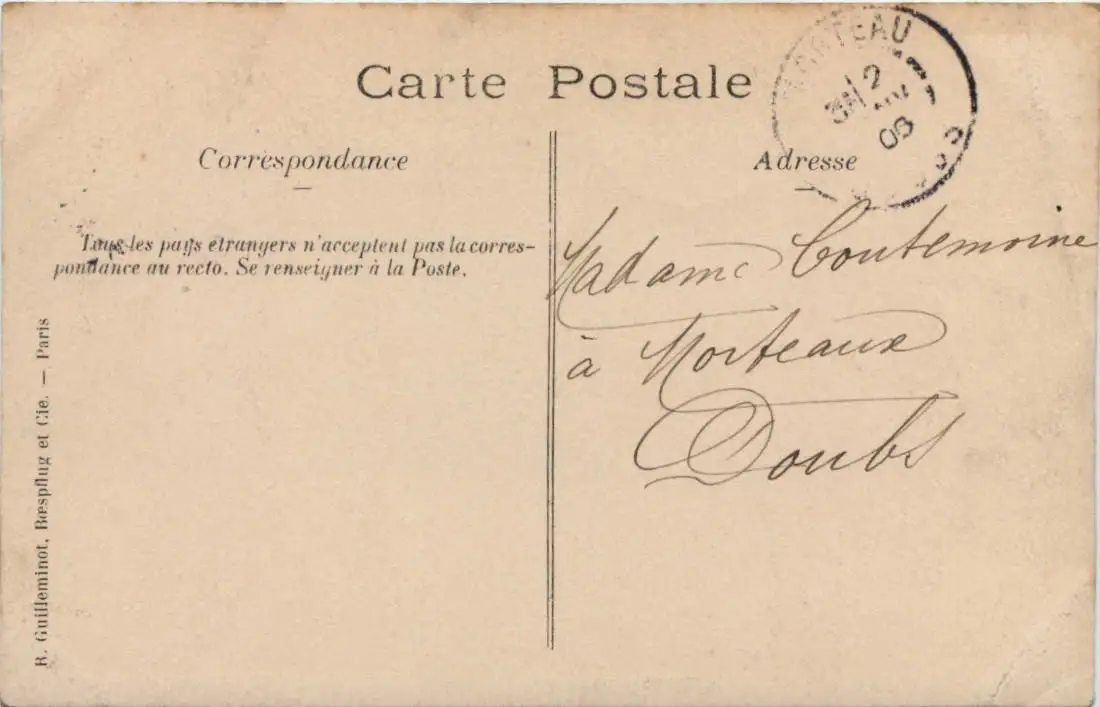 Carte Postale
MORTEAU
2
08
Correspondance
Adresse
Tous les pays étrangers n'acceptent pas la corres-
pondance au recto. Se renseigner à la Poste.
Madame Coutemoine
à Morteaux
Doubs
R. Guilleminot, Bœspflug et Cie. — Paris